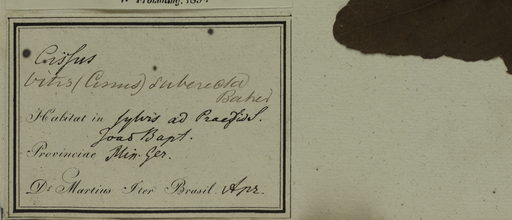 Cissus
Vitis (Cissus) suberecta
Baker
Habitat in sylvis ad Praesid. S.
Joao Bapt.
Provinciae Min. Ger.
Dr Martius Iter Brasil. Apr.